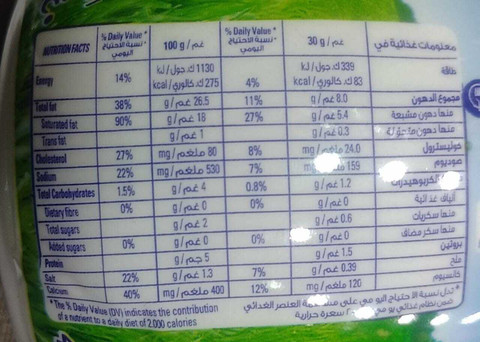 NUTRITION FACTS % Daily Value * نسبة الاحتياج اليومي 100 g / غم % Daily Value * نسبة الاحتياج اليومي 30 g / غم معلومات غذائية في
Energy 14% 1130 ك. جول / kJ 275 ك. كالوري / kcal 4% 339 ك. جول / kJ 83 ك. كالوري / kcal طاقة
Total fat 38% 26.5 غم / g 11% 8.0 غم / g مجموع الدهون
Saturated fat 90% 18 غم / g 27% 5.4 غم / g منها دهون مشبعة
Trans fat 1 غم / g 0.3 غم / g منها دهون متحولة
Cholesterol 27% 80 ملغم / mg 8% 24.0 ملغم / mg كوليسترول
Sodium 22% 530 ملغم / mg 7% 159 صوديوم
Total Carbohydrates 1.5% 4 غم / g 0.8% 1.2 غم / g الكربوهيدرات
Dietary fibre 0% 0 غم / g 0% 0 غم / g ألياف غذائية
Total sugars 2 غم / g 0.6 غم / g منها سكريات
Added sugars 0% 0 غم / g 0% 0 غم / g منها سكر مضاف
Protein 5 جم / g 1.5 غم / g بروتين
Salt 22% 1.3 غم / g 7% 0.39 غم / g ملح
Calcium 40% 400 ملغم / mg 12% 120 ملغم / mg كالسيوم
* The % Daily Value (DV) indicates the contribution
of a nutrient to a daily diet of 2.000 calories
* تدل نسبة الاحتياج اليومي على العنصر الغذائي
ضمن نظام غذائي سعرة حرارية